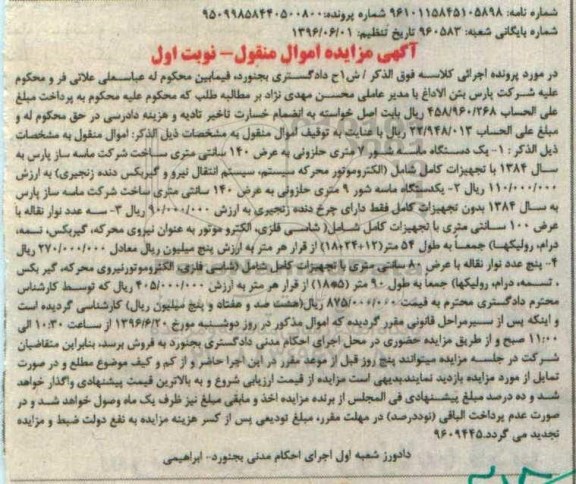 شماره نامه: ۹۶۱۰۱۱۵۸۴۵۱۰۵۸۹۸ شماره پرونده:۹۵۰۹۹۸۵۸۴۴۰۵۰۰۸۰۰
شماره بایگانی شعبه: ۹۶۰۵۸۳ تاریخ تنظیم: ۱۳۹۶/۰۶/۰۱
آگهی مزایده اموال منقول- نوبت اول
در مورد پرونده اجرائی کلاسه فوق الذکر / ش۱ح دادگستری بجنورد، فیمابین محکوم له عباسعلی علائی فر و محکوم
علیه شرکت پارس بتن الاداغ با مدیر عاملی محسن مهدی نژاد بر مطالبه طلب که محکوم علیه محکوم به پرداخت مبلغ
علی الحساب ۴۵۸/۹۶۰/۲۶۸ ریال بابت اصل خواسته به انضمام خسارت تاخیر تادیه و هزینه دادرسی در حق محکوم له و
مبلغ علی الحساب ۲۲/۹۴۸/۰۱۳ ریال با عنایت به توقیف اموال منقول به مشخصات ذیل الذکر: اموال منقول به مشخصات
ذیل الذکر : ۱- یک دستگاه ماسه شور ۷ متری حلزونی به عرض ۱۴۰ سانتی متری ساخت شرکت ماسه ساز پارس به
سال ۱۳۸۴ با تجهیزات کامل شامل (الکتروموتور محرکه سیستم، سیستم انتقال نیرو و گیربکس دنده زنجیری) به ارزش
۱۱۰/۰۰۰/۰۰۰ ریال ۲- یکدستگاه ماسه شور ۹ متری حلزونی به عرض ۱۴۰ سانتی متری ساخت شرکت ماسه ساز پارس
به سال ۱۳۸۴ بدون تجهیزات کامل فقط دارای چرخ دنده زنجیری به ارزش ۹۰/۰۰۰/۰۰۰ ریال ۳- سه عدد نوار نقاله با
عرض ۱۰۰ سانتی متری با تجهیزات کامل شامل( شاسی فلزی، الکترو موتور به عنوان نیروی محرکه، گیربکس، تسمه،
درام، رولیکها) جمعاً به طول ۵۴ متر(۱۲+۲۴+۱۸) از قرار هر متر به ارزش پنج میلیون ریال معادل ۲۷۰/۰۰۰/۰۰۰ ریال
۴- پنج عدد نوار نقاله با عرض ۸۰ سانتی متری با تجهیزات کامل شامل (شاسی فلزی، الکتروموتورنیروی محرکه، گیر بکس
، تسمه، درام، رولیکها) جمعاً به طول ۹۰ متر (۵*۱۸) از قرار هر متر به ارزش ۴۰۵/۰۰۰/۰۰۰ ریال که توسط کارشناس
محترم دادگستری محترم به قیمت ۸۷۵/۰۰۰/۰۰۰ ریال(هشت صد و هفتاد و پنج میلیون ریال) کارشناسی گردیده است
و اینکه پس از سیرمراحل قانونی مقرر گردیده که اموال مذکور در روز دوشنبه مورخ ۱۳۹۶/۶/۲۰ از ساعت ۱۰:۳۰ الی
۱۱:۰۰ صبح و از طریق مزایده حضوری در محل اجرای احکام مدنی دادگستری بجنورد به فروش برسد، بنابراین متقاضیان
شرکت در جلسه مزایده میتوانند پنج روز قبل از موعد مقرر در این اجرا حاضر و از کم و کیف موضوع مطلع و در صورت
تمایل از مورد مزایده بازدید نمایندبدیهی است مزایده از قیمت ارزیابی شروع و به بالاترین قیمت پیشنهادی واگذار خواهد
شد و ده درصد مبلغ پیشنهادی فی المجلس از برنده مزایده اخذ و مابقی مبلغ نیز ظرف یک ماه وصول خواهد شد و در
صورت عدم پرداخت الباقی (نوددرصد) در مهلت مقرر، مبلغ تودیعی پس از کسر هزینه مزایده به نفع دولت ضبط و مزایده
تجدید می گردد.۹۶۰۹۴۴۵
دادورز شعبه اول اجرای احکام مدنی بجنورد- ابراهیمی